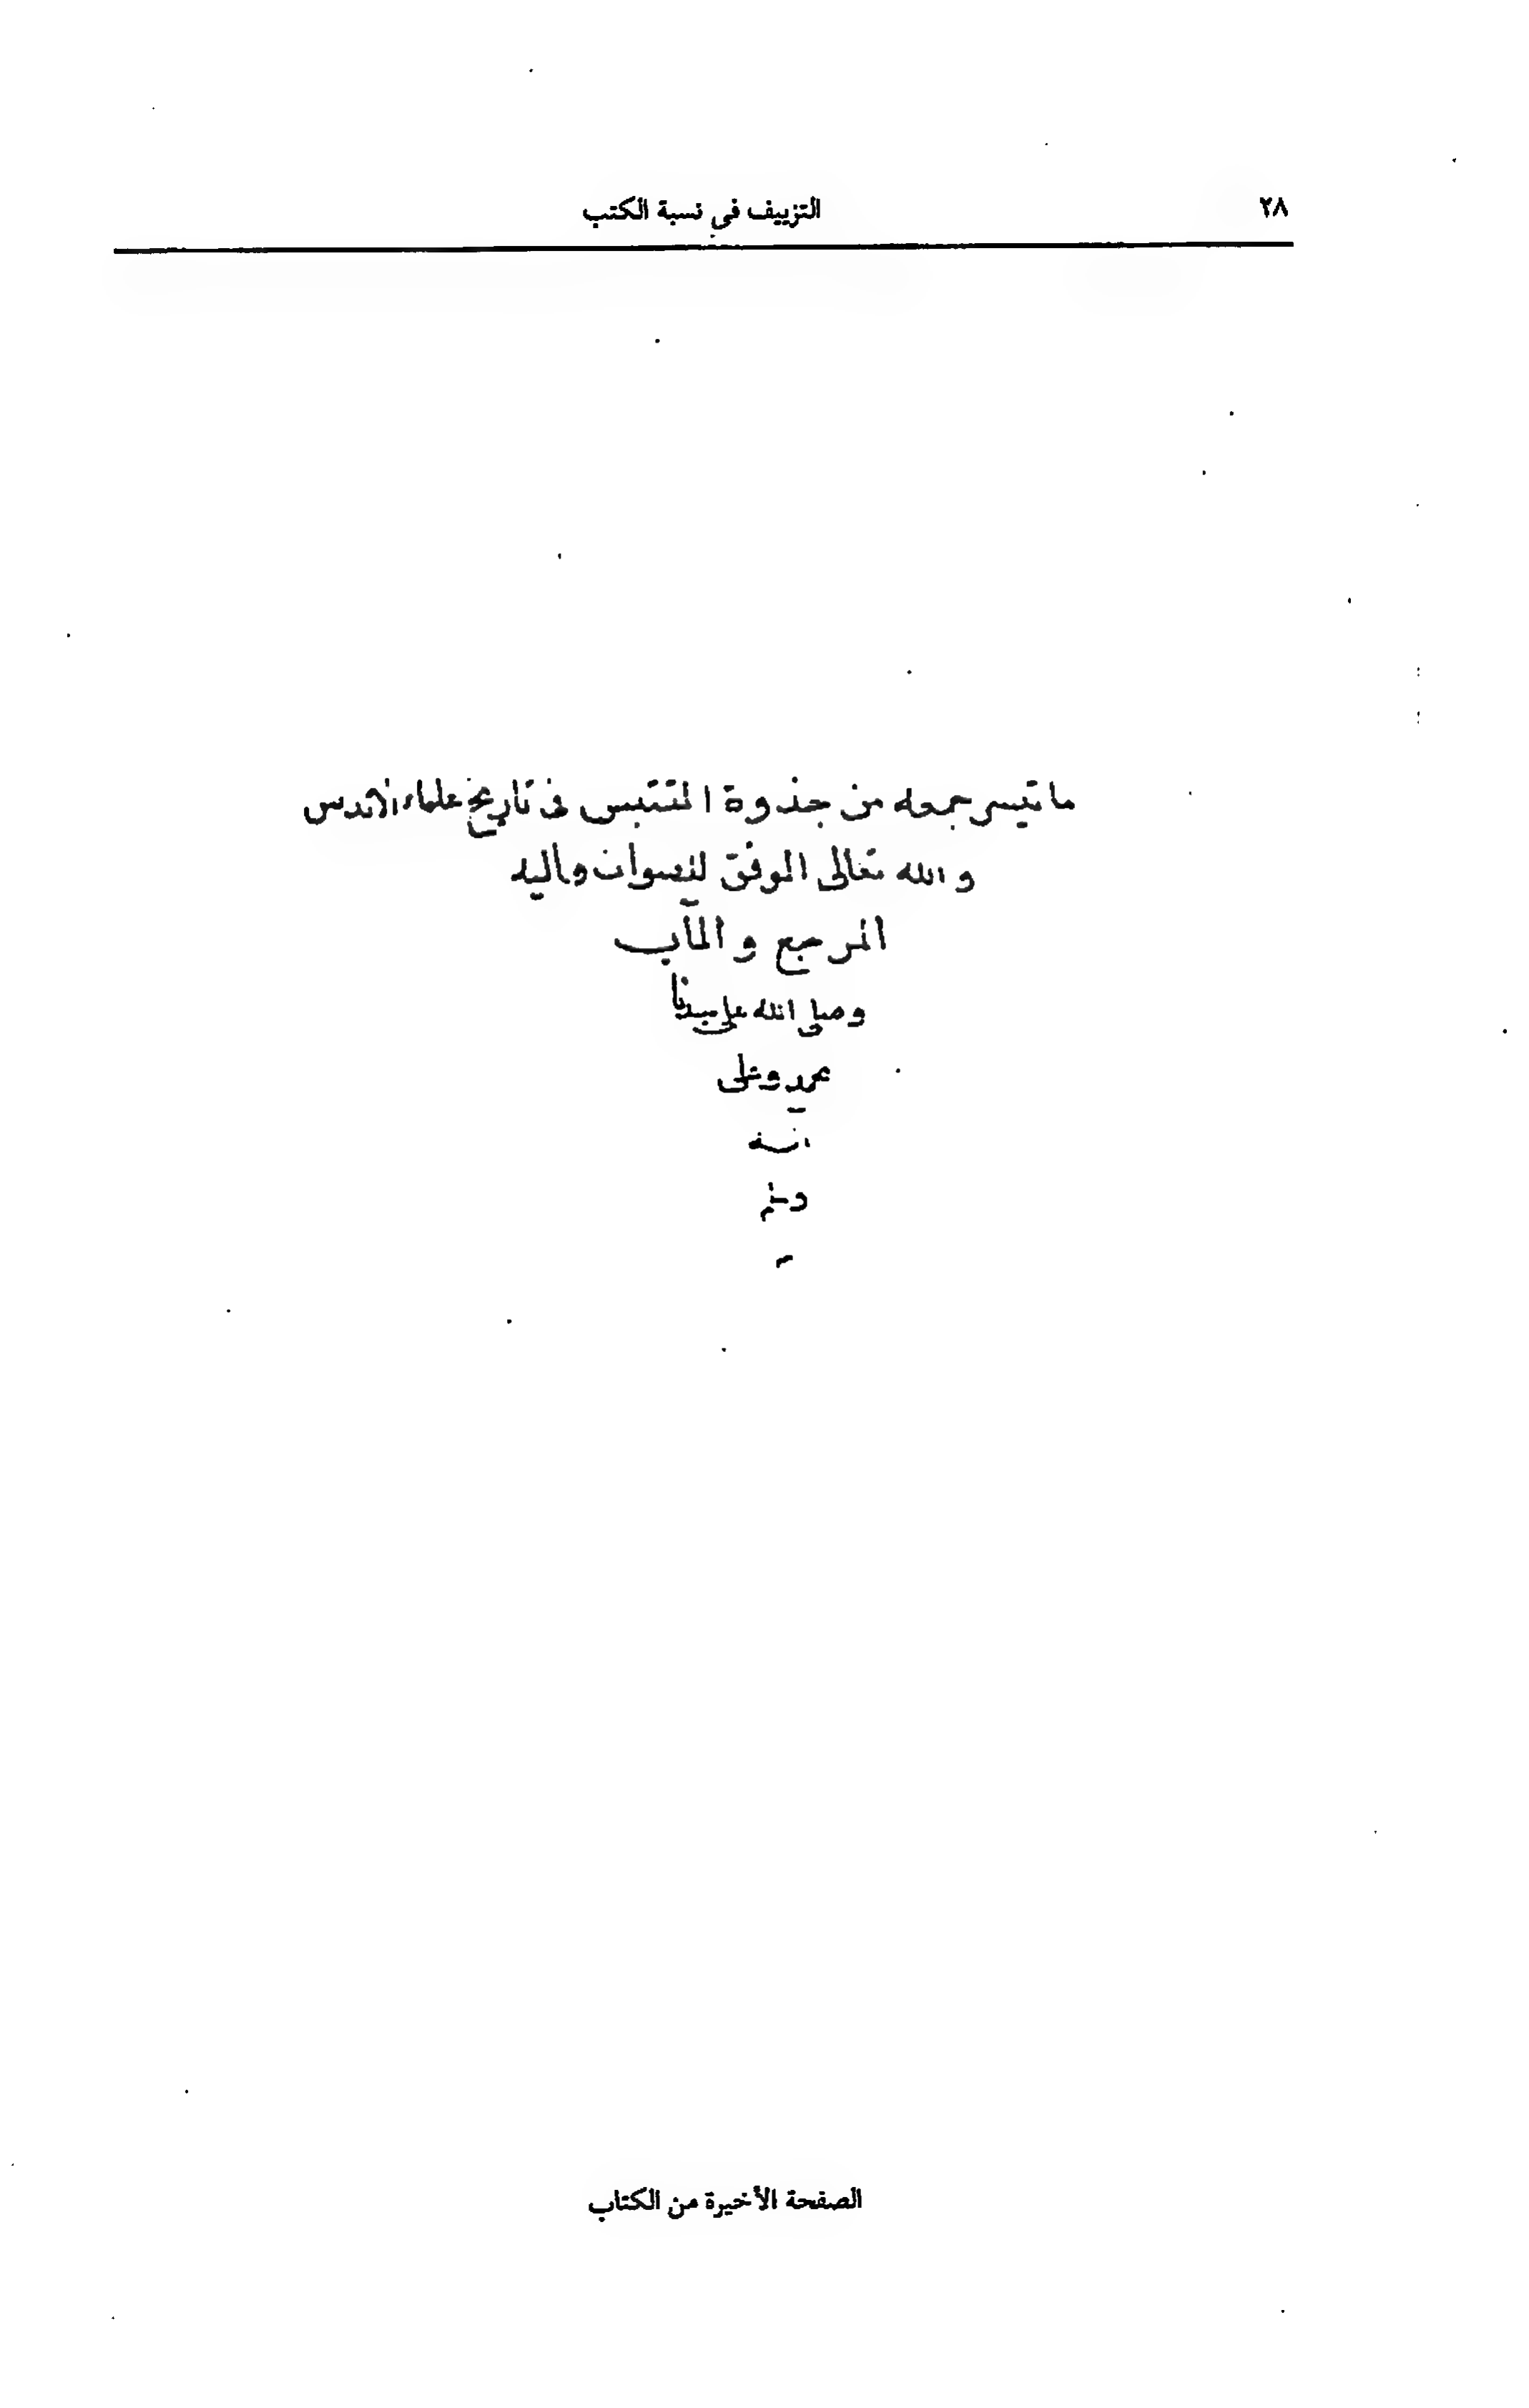 ٢٨
التزييف في نسبة الكتب
ما تيسر جمعه من جذوة المقتبس في تاريخ علماء الأندس
والله تعالى الموفق للصواب واليه
المرجع والمآب
وصلى الله على سيدنا
محمد وعلى
اله
وسلم
م
الصفحة الأخيرة من الكتاب